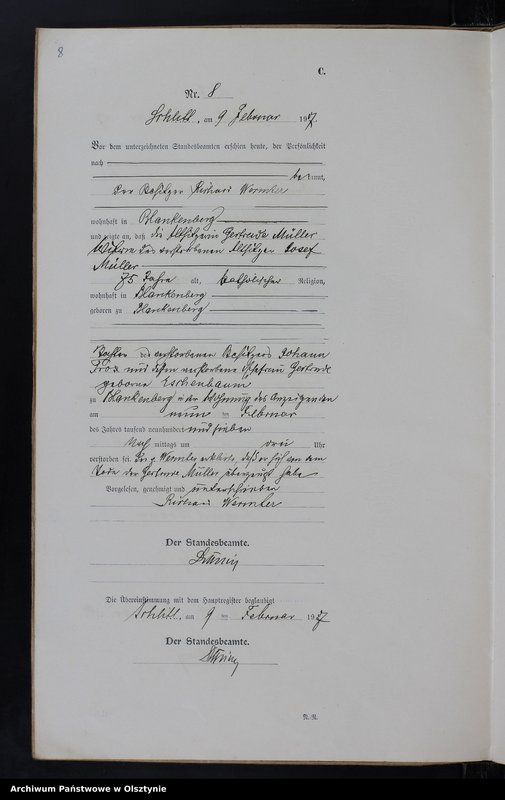 8
C.
Nr. 8
Schlitt, am 9 Februar 1907.
Vor dem unterzeichneten Standesbeamten erschien heute, der Persönlichkeit
nach
be kannt,
der Besitzer Richard Wermter
wohnhaft in Blankenberg
und zeigte an, daß die Altsitzerin Gertrude Müller
Witwe des verstorbenen Altsitzer Josef
Müller
85 Jahre alt, katholischer Religion,
wohnhaft in Blankenberg
geboren zu Blankenberg
Tochter des verstorbenen Besitzers Johann
und dessen verstorbene Ehefrau Gertrude
geborne Eschenbaum
zu Blankenberg in der Wohnung des Anzeigenden
am neun ten Februar
des Jahres tausend neunhundert und sieben
Nach mittags um drei Uhr
verstorben sei. Der p. Wermter erklärte, daß er sich von dem
Tode der Gertrude Müller überzeugt habe
Vorgelesen, genehmigt und unterschrieben
Richard Wermter
Der Standesbeamte.
Die Übereinstimmung mit dem Hauptregister beglaubigt
Schlitt, am 9 ten Februar 1907
Der Standesbeamte.
Archiwum Państwowe w Olsztynie